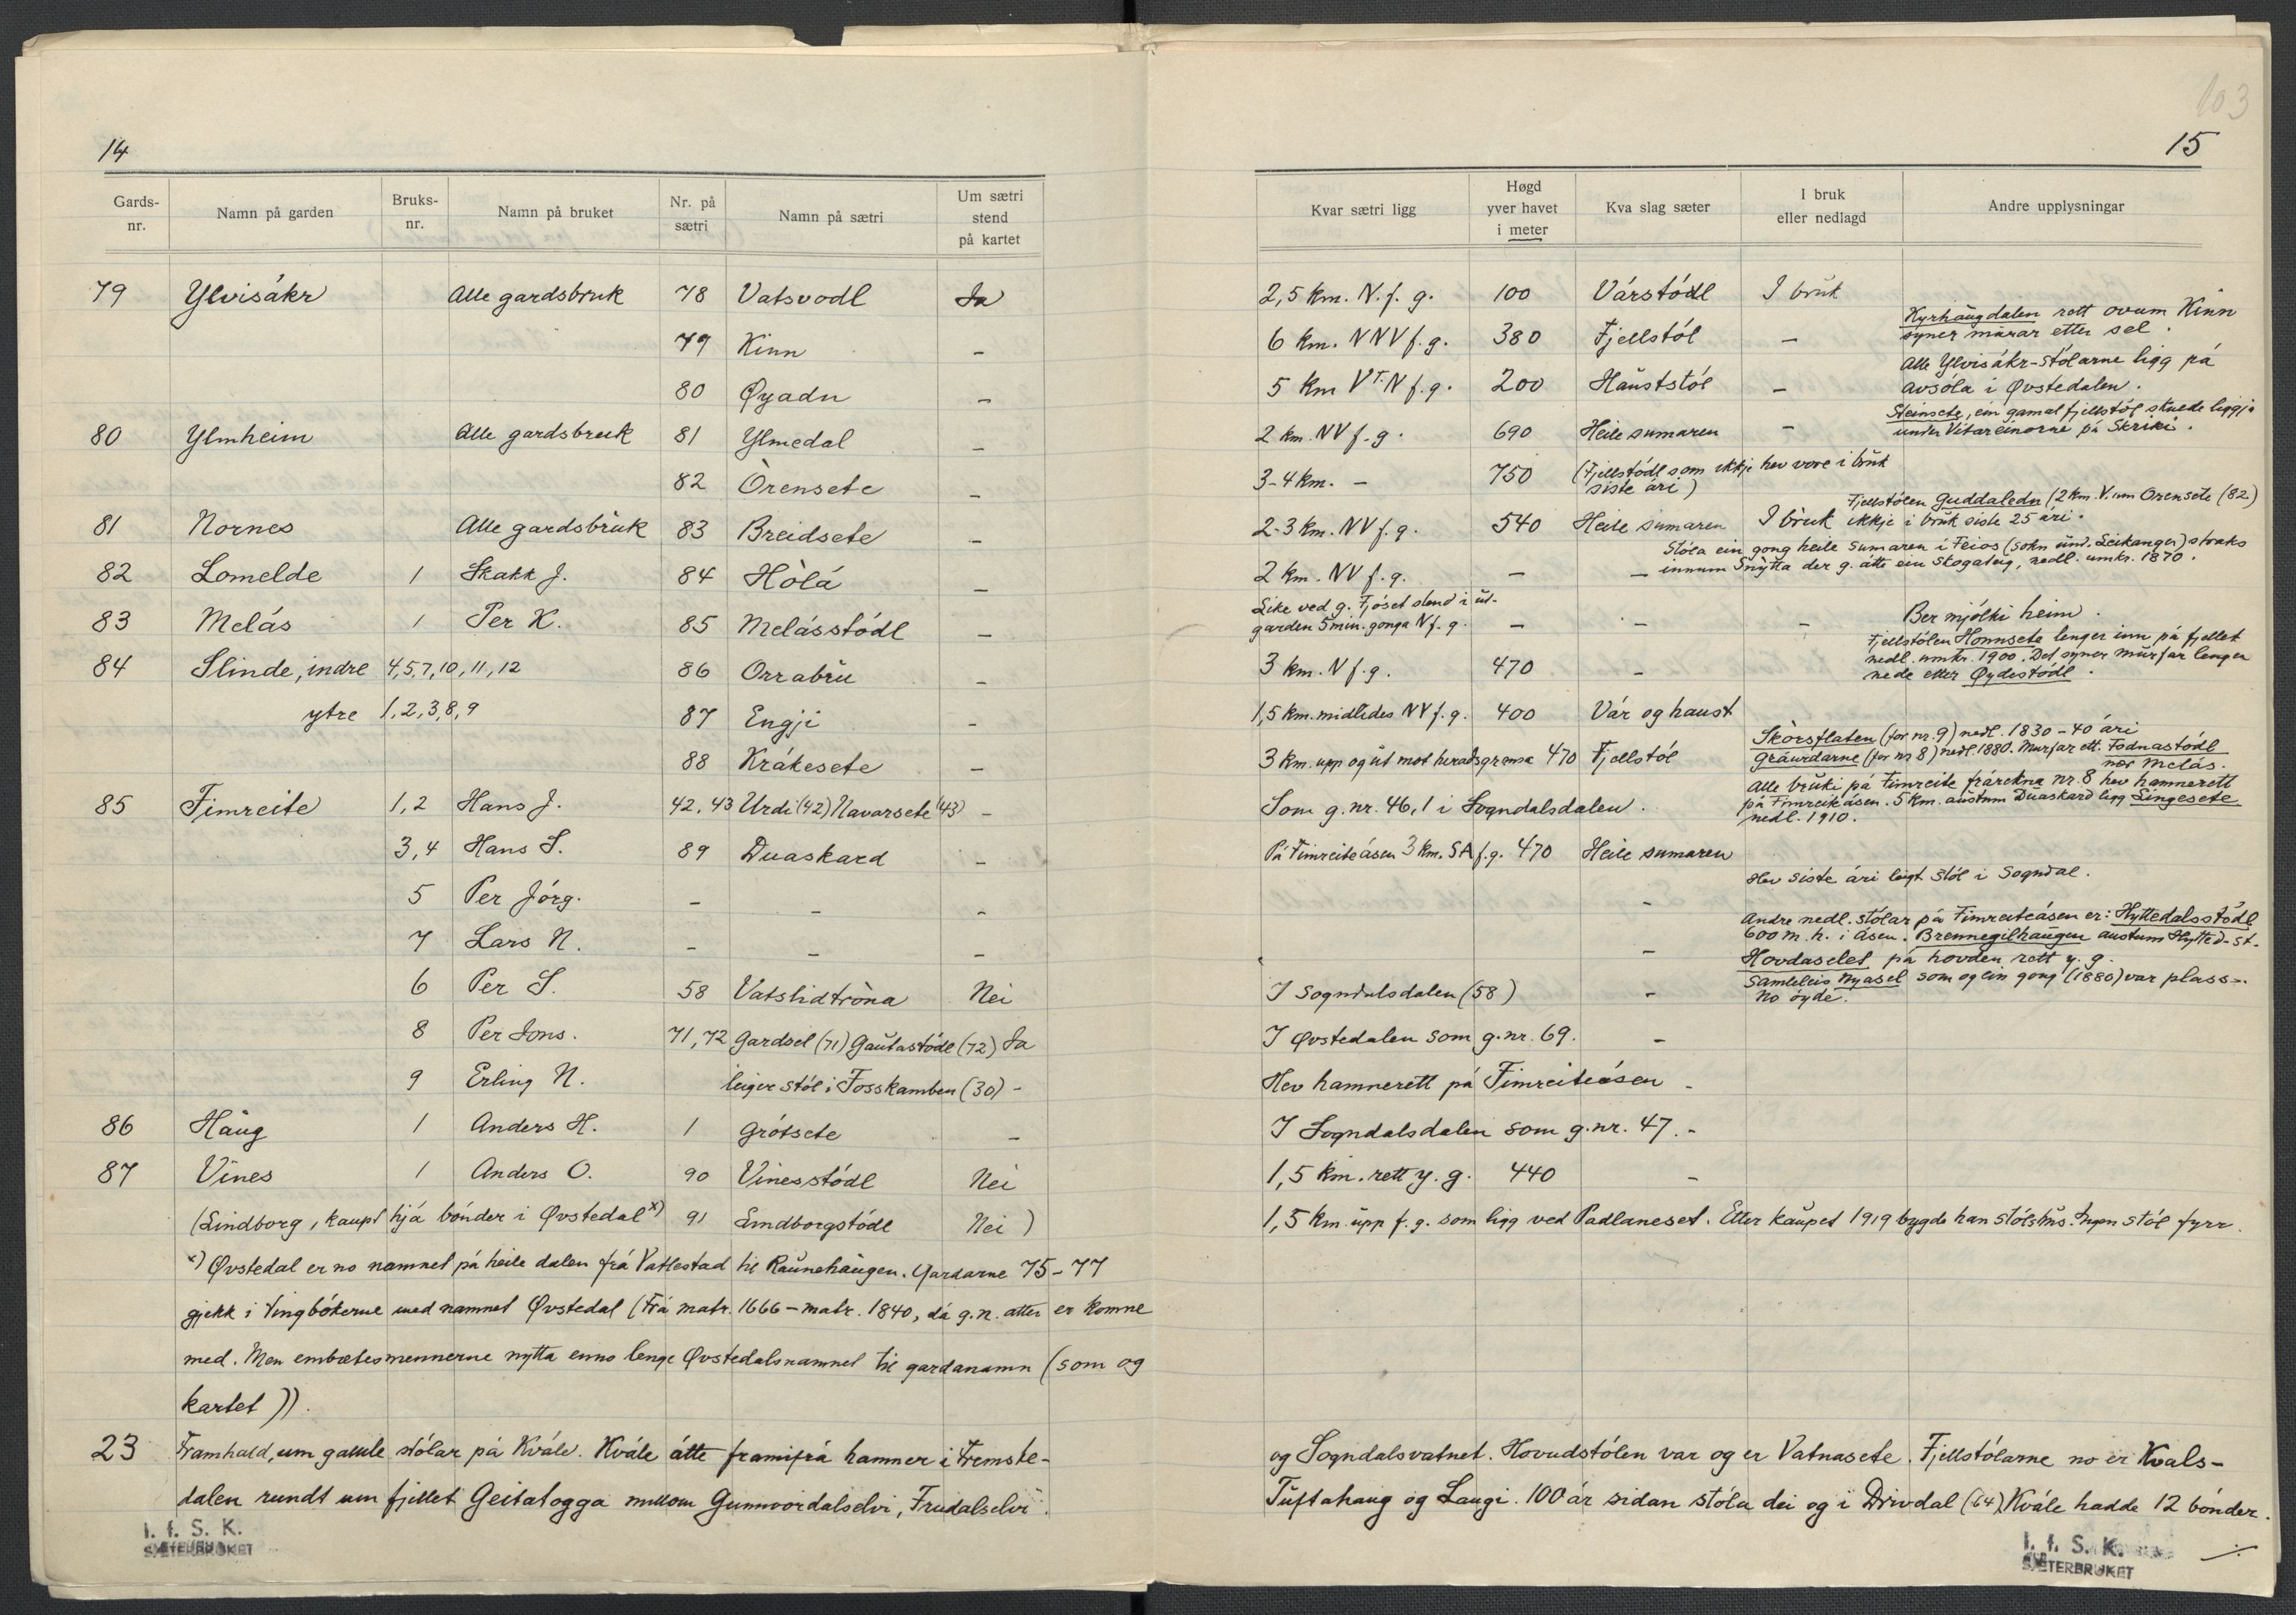 103
14
15
Gards-nr. Namn på garden Bruks-nr. Namn på bruket Nr. på sætri Namn på sætri Um sætri stend på kartet
Kvar sætri ligg Høgd yver havet i meter Kva slag sæter I bruk eller nedlagd Andre upplysningar
79 Ylvisåkr Alle gardsbruk 78 Vatsvodl Ja
79 Kinn –
80 Øyadn –
80 Ylmheim Alle gardsbruk 81 Ylmedal –
82 Òrensete –
81 Nornes Alle gardsbruk 83 Breidsete –
82 Lomelde 1 Skakk J. 84 Hòlá –
83 Melás 1 Per K. 85 Melásstódl –
84 Slinde, indre 4,5,7,10,11,12 86 Orrabru –
ytre 1,2,3,8,9 87 Engji –
88 Krákesete –
85 Fimreite 1,2 Hans J. 42, 43 Urdi (42) Navarsete (43) –
3,4 Hans S. 89 Duaskard –
5 Per Jórg. – – –
7 Lars N. – – –
6 Per S. 58 Vatslidtròna Nei
8 Per Jons. 71, 72 Gardsel (71) Gautastódl (72) Ja
9 Erling N. leiger stól i Fosskamben (30) –
86 Haug 1 Anders H. 1 Grótsete –
87 Vines 1 Anders O. 90 Vinesstódl Nei
(Lindborg, kaupt hjá bónder i Øvstedal x) 91 Lindborgstódl Nei )
x) Øvstedal er no namnet på heile dalen frá Vatlestad til Raunehaugen. Gardarne 75–77
gjekk i tingbókerne med namnet Øvstedal (Frá matr. 1666–matr. 1840, dá g.n. atter er komne
med. Men embætesmennerne nytta enno lenge Øvstedalsnamnet til gardanamn (som og
kartet )).
23 Framhald, um gamle stólar på Kvåle. Kvále átte framifrá hamner i Fremste-
dalen rundt um fjellet Geitatogga millom Gunnvordalselvi, Frudalselvi
I. f. S. K.
SÆTERBRUKET
2,5 km. N. f. g. 100 Várstódl I bruk
Kyrhaugdalen rett ovum Kinn
syner murar etter sel.
6 km. NNV f. g. 380 Fjellstól –
Alle Ylvisåkr-stólarne ligg på
avsóla i Øvstedalen.
5 km VT.N f. g. 200 Hauststól –
Steinsete, ein gamal fjellstól skulde liggja
under Vitareinorne på Skriki.
2 km. NV f. g. 690 Heile sumaren –
3-4 km. – 750 (Fjellstódl som ikkje hev vore i bruk
siste ári)
Fjellstólen Guddaledn (2 km. V. um Orensete (82)
ikkje i bruk siste 25 ári.
2-3 km. NV f. g. 540 Heile sumaren I bruk
Stóla ein gong heile sumaren i Feios (sokn und. Leikanger) straks
innum Snytta der g. átte ein skogateig, nedl. umkr. 1870.
2 km. NV f. g. – –
Like ved g. Fjóset stend i ut-
garden 5 min. gonga N f. g. – – –
Ber mjólki heim.
Fjellstólen Honnsete lenger inn på fjellet
nedl. umkr. 1900. Det syner murfar lenger
nede etter Øydestódl.
3 km. N f. g. 470 –
1,5 km. midlides NV f. g. 400 Vár og haust
Skòrsflaten (for nr. 9) nedl. 1830–40 ári
Gráurdarne (for nr 8) nedl 1880. Murfar ett. Fodnastódl
nær Melás.
3 km. upp og út mot heradsgrensa 470 Fjellstól
Alle bruki på Fimreite frárekna nr. 8 hev hamnerett
på Fimreiteásen. 5 km. austum Duaskard ligg Lingesete
nedl. 1910.
Som g. nr. 46,1 i Sogndalsdalen.
På Fimreiteásen 3 km. SA f. g. 470 Heile sumaren
Hev siste ári leigt stól i Sogndal.
–
Andre nedl. stólar på Fimreiteásen er: Hyttedalsstódl
600 m. h. i ásen. Brennegilhaugen austum Hytted-st.
–
Hovdaselet på hovden rett y. g.
Samleleis Nyasel som og ein gong (1880) var plass.
No óyde.
I Sogndalsdalen (58) –
I Øvstedalen som g. nr. 69. –
Hev hamnerett på Fimreiteásen –
I Sogndalsdalen som g. nr. 47. –
1,5 km. rett y. g. 440 –
1,5 km. upp f. g. som ligg ved Padlaneset. Etter kaupet 1919 bygde han stólshus. Ingen stól fyrr.
og Sogndalsvatnet. Hovudstólen var og er Vatnasete. Fjellstólarne no er Kvals-
Tuftahaug og Laugi. 100 år sidan stóla dei og i Drivdal (64) Kvále hadde 12 bónder.
I. f. S. K.
SÆTERBRUKET